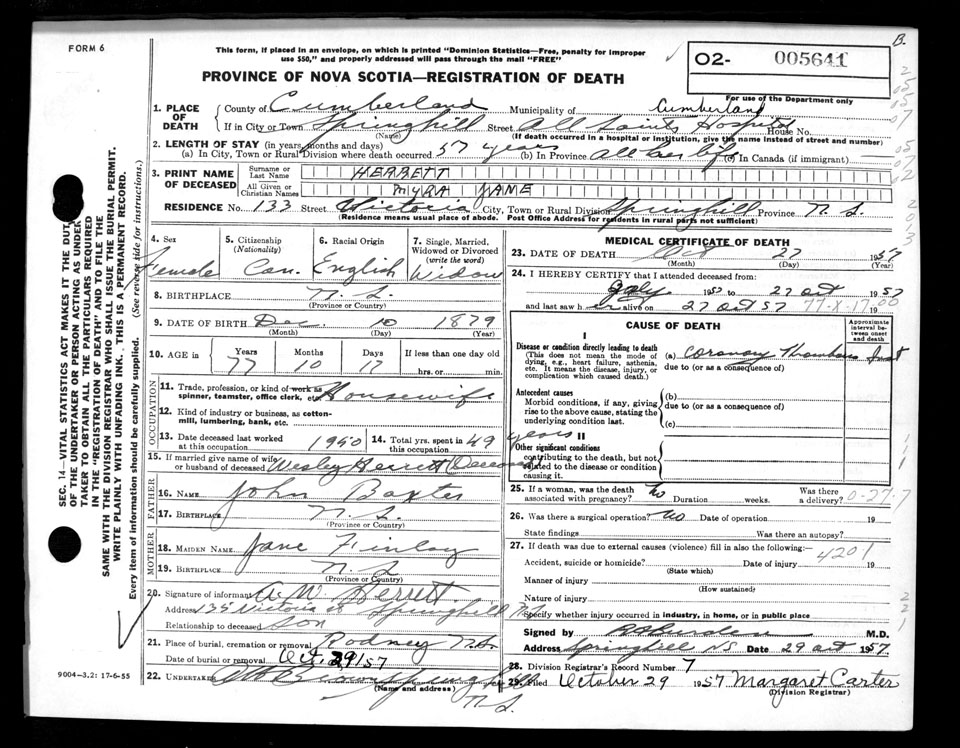 FORM 6
This form, if placed in an envelope, on which is printed "Dominion Statistics—Free, penalty for improper
use $50," and properly addressed will pass through the mail "FREE"
PROVINCE OF NOVA SCOTIA—REGISTRATION OF DEATH
B.
02- 005641
For use of the Department only
1. PLACE OF DEATH
County of Cumberland Municipality of Cumberland
If in City or Town Springhill Street All Saints Hospital House No.
(Name) (If death occurred in a hospital or institution, give the name instead of street and number)
2. LENGTH OF STAY (in years, months and days)
(a) In City, Town or Rural Division where death occurred 57 years (b) In Province All her life (c) In Canada (if immigrant)
3. PRINT NAME OF DECEASED
Surname or Last Name HERRETT
All Given or Christian Names MYRA JANE
RESIDENCE No. 133 Street Victoria City, Town or Rural Division Springhill Province N.S.
(Residence means usual place of abode. Post Office Address for residents in rural parts not sufficient)
4. Sex Female
5. Citizenship (Nationality) Can.
6. Racial Origin English
7. Single, Married, Widowed or Divorced (write the word) Widow
8. BIRTHPLACE N.S.
(Province or Country)
9. DATE OF BIRTH Dec. 10 1879
(Month) (Day) (Year)
10. AGE in Years 77 Months 10 Days 17 If less than one day old hrs. or min.
OCCUPATION
11. Trade, profession, or kind of work as spinner, teamster, office clerk, etc. Housewife
12. Kind of industry or business, as cotton-mill, lumbering, bank, etc.
13. Date deceased last worked at this occupation 1950
14. Total yrs. spent in this occupation 49 years
15. If married give name of wife or husband of deceased Wesley Herrett (Deceased)
FATHER
16. NAME John Baxter
17. BIRTHPLACE N.S.
(Province or Country)
MOTHER
18. MAIDEN NAME Jane Finlay
19. BIRTHPLACE N.S.
(Province or Country)
20. Signature of informant A. W. Herrett
Address 135 Victoria St Springhill N.S.
Relationship to deceased Son
21. Place of burial, cremation or removal Rodney N.S.
Date of burial or removal Oct, 29/57
22. UNDERTAKER Springhill
(Name and address) N.S.
9004-3.2: 17-6-55
MEDICAL CERTIFICATE OF DEATH
23. DATE OF DEATH Oct 27 1957
(Month) (Day) (Year)
24. I HEREBY CERTIFY that I attended deceased from:
July 1957 to 27 Oct 1957
and last saw her alive on 27 Oct 57 77-X-17.00 19
CAUSE OF DEATH
Approximate interval between onset and death
I
Disease or condition directly leading to death
(This does not mean the mode of dying, e.g., heart failure, asthenia, etc. It means the disease, injury, or complication which caused death.)
(a) Coronary Thrombosis Inst
due to (or as a consequence of)
Antecedent causes
Morbid conditions, if any, giving rise to the above cause, stating the underlying condition last.
(b)
due to (or as a consequence of)
(c)
II
Other significant conditions
contributing to the death, but not related to the disease or condition causing it.
25. If a woman, was the death associated with pregnancy? No Duration weeks. Was there a delivery? 0-27.7
26. Was there a surgical operation? No Date of operation 19
State findings Was there an autopsy?
27. If death was due to external causes (violence) fill in also the following:—
4201
Accident, suicide or homicide? Date of injury 19
(State which)
Manner of injury
(How sustained)
Nature of injury
Specify whether injury occurred in industry, in home, or in public place
Signed by M.D.
Address Springhill NS Date 29 Oct 1957
28. Division Registrar's Record Number 7
29. Filed October 29 1957 Margaret Carter
(Division Registrar)
SEC. 14—VITAL STATISTICS ACT MAKES IT THE DUTY
OF THE UNDERTAKER OR PERSON ACTING AS UNDER-
TAKER TO OBTAIN ALL THE PARTICULARS REQUIRED
IN THE "REGISTRATION OF DEATH" AND TO FILE THE
SAME WITH THE DIVISION REGISTRAR WHO SHALL ISSUE THE BURIAL PERMIT.
WRITE PLAINLY WITH UNFADING INK. THIS IS A PERMANENT RECORD.
Every item of information should be carefully supplied. (See reverse side for instructions.)